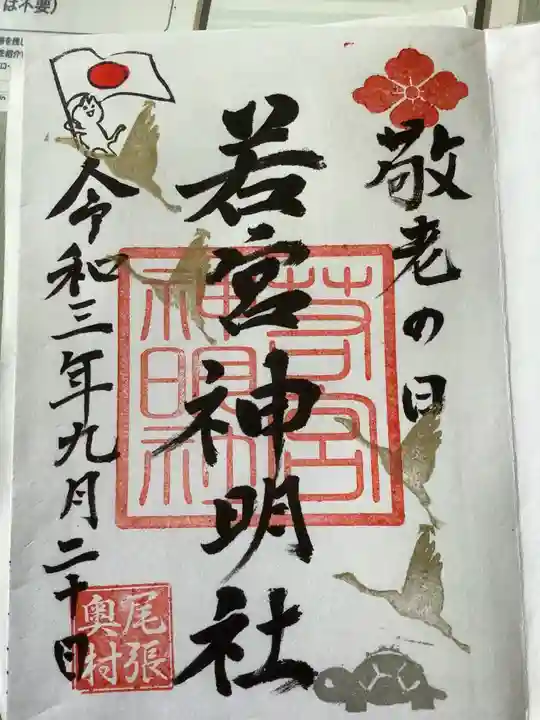 は不要)
敬老の日
若宮神明社
若宮
神明社
令和三年九月二十日
尾張
奥村